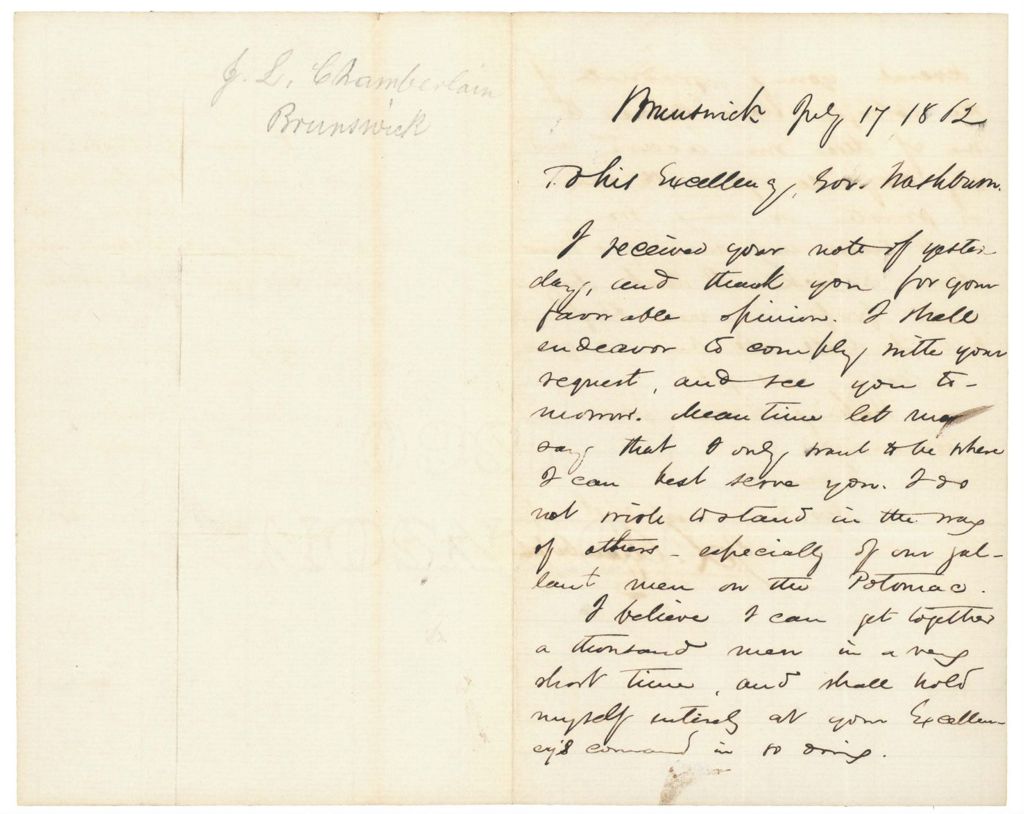 J. L. Chamberlain
Brunswick
Brunswick July 17 1862
To his Excellency, Gov. Washburn.
I received your note of yester-
day, and thank you for your
favorable opinion. I shall
endeavor to comply with your
request, and see you to-
morrow. Meantime let me
say that I only want to be where
I can best serve you. I do
not wish to stand in the way
of others - especially of our gal-
lant men on the Potomac.
I believe I can get together
a thousand men in a very
short time, and shall hold
myself entirely at your Excellen-
cy's command in so doing.